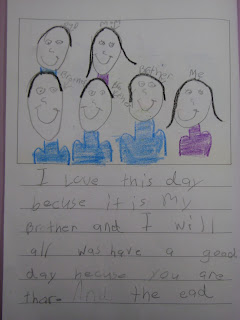 Dad
Mum
Brother
Me
I Love this day
becuse it is my
Brother and I will
all was have a good
day because you are
thare And the ead